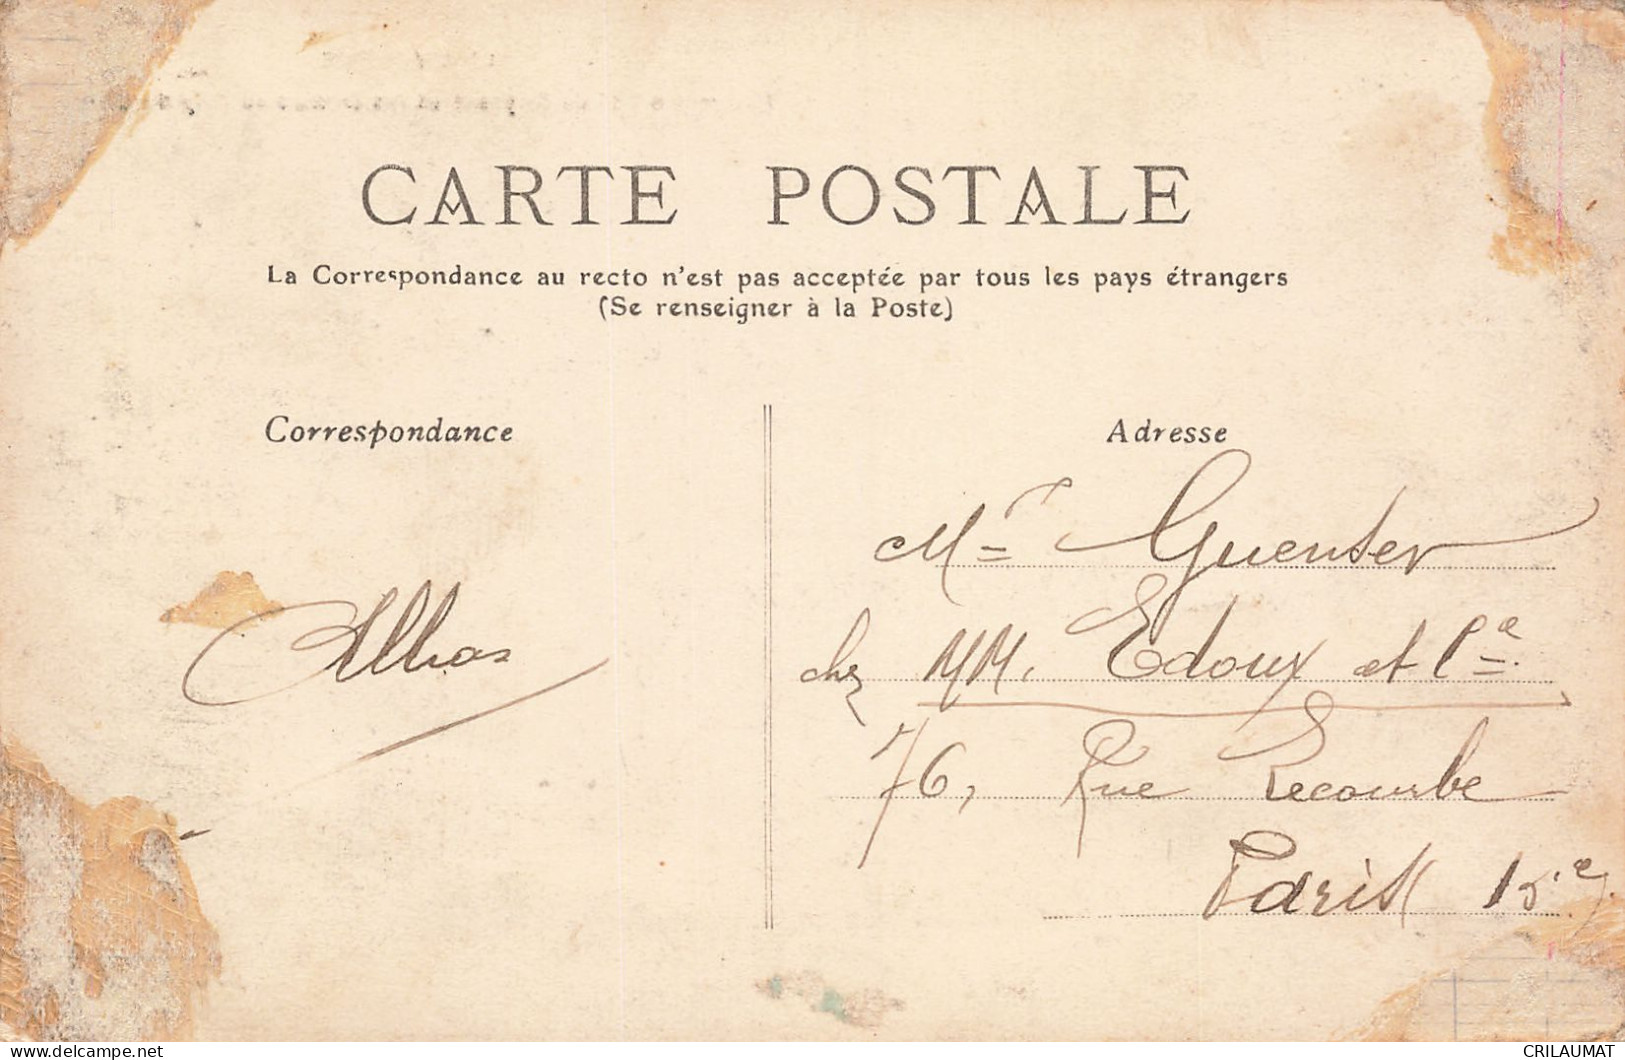 CARTE POSTALE
La Correspondance au recto n'est pas acceptée par tous les pays étrangers
(Se renseigner à la Poste)
Correspondance
Adresse
Mr Guenter
chez MM. Edoux et Cie
76, Rue Lecourbe
Paris 15e
delcampe.net
CRILAUMAT